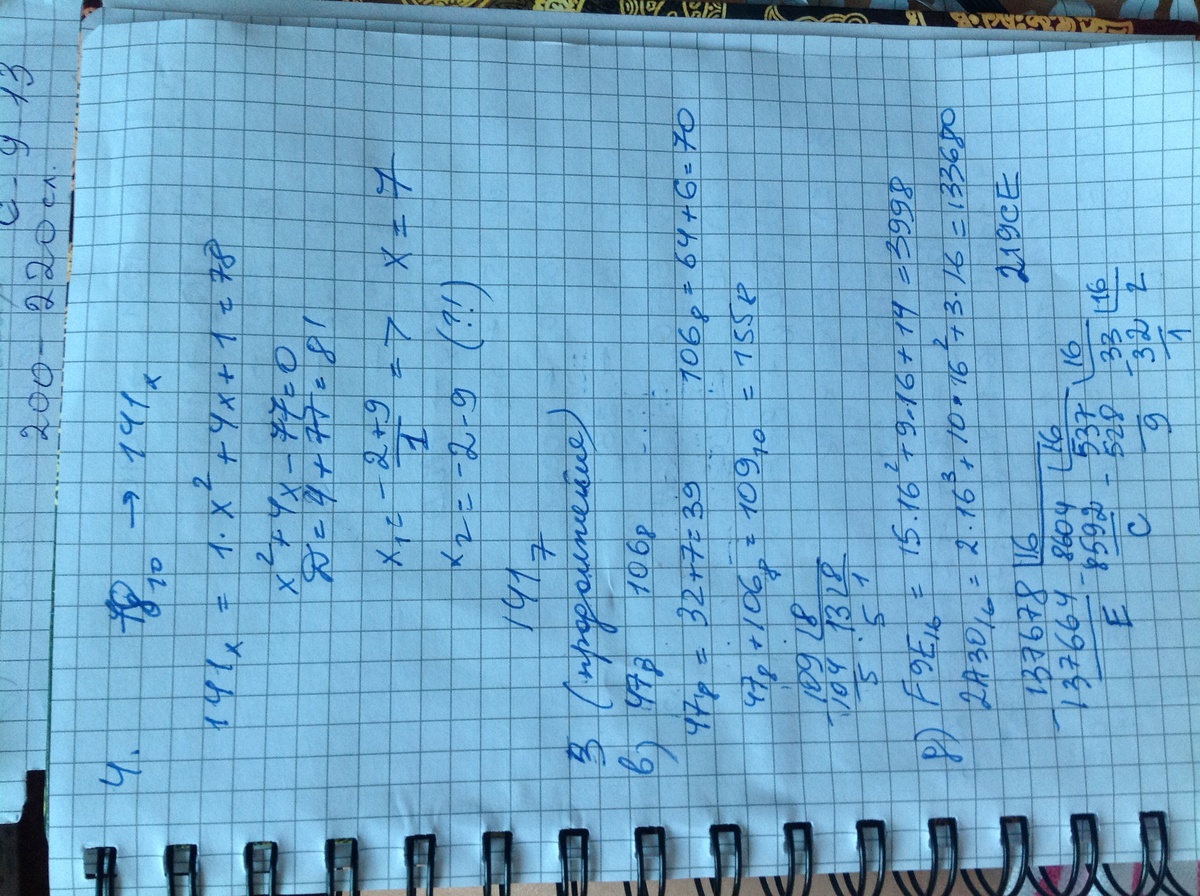 с-у 13
200-220 сл.
4. 78₁₀ → 141ₓ
141ₓ = 1·x² + 4x + 1 = 78
x² + 4x - 77 = 0
D = 4 + 77 = 81
x₁ = (-2+9)/1 = 7 x = 7
x₂ = -2-9 (?!)
141₇
3 (продолжение)
в) 47₈ 106₈
47₈ = 32+7=39 106₈ = 64+6=70
47₈ + 106₈ = 109₁₀ = 155₈
109 | 8
-104 13 | 8
5 5 1
д) F9E₁₆ = 15·16² + 9·16 + 14 = 3998
2A30₁₆ = 2·16³ + 10·16² + 3·16 = 133680
219CE
137678 | 16
-137664 -8604 | 16
E 8592 -537 | 16
C 528 -33 | 16
9 32 2
1